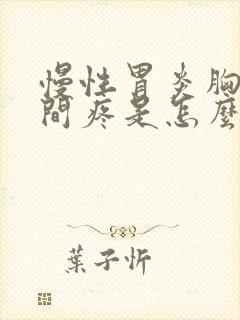 慢性胃炎胸
間疼是怎麼
葉子忻